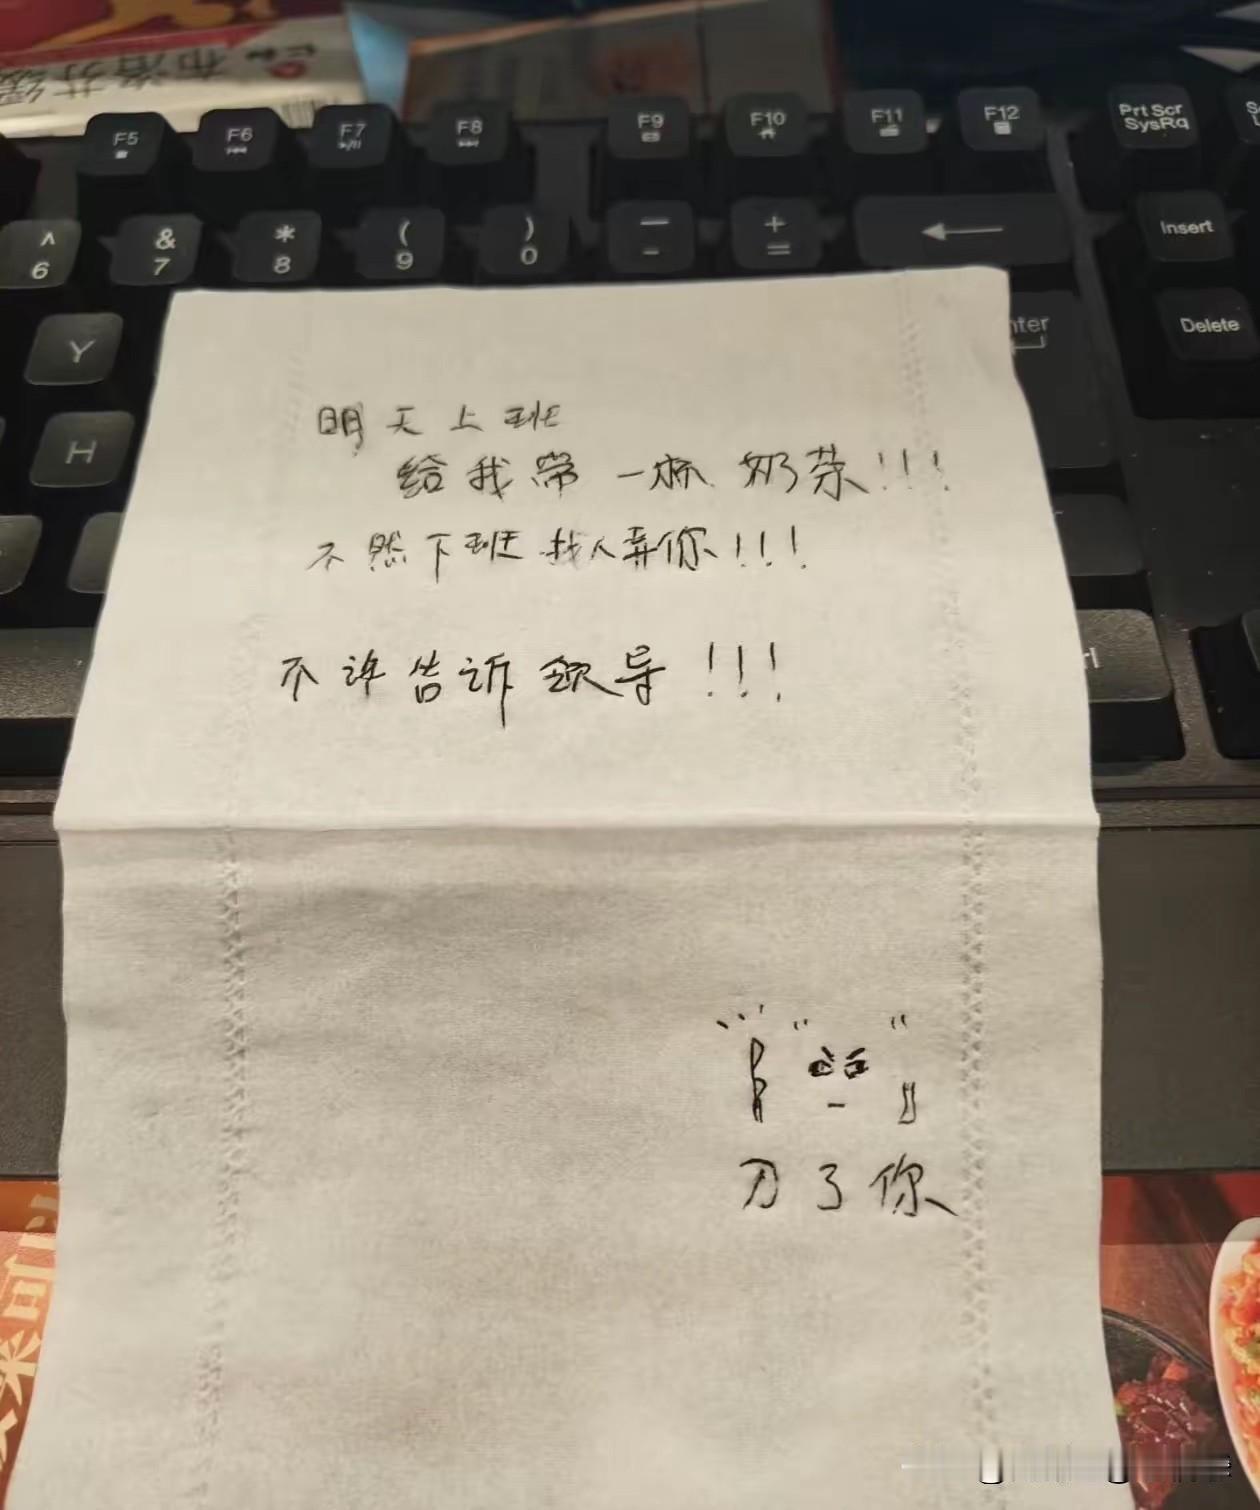 布洛芬缓
F5 F6 F7 F8 F9 F10 F11 F12 Prt Scr SysRq
^ 6 & 7 * 8 ( 9 ) 0 — - + = Insert
Y Delete
H
明天上班
给我带一杯奶茶!!!
不然下班找人弄你!!!
不许告诉领导!!!
刀了你